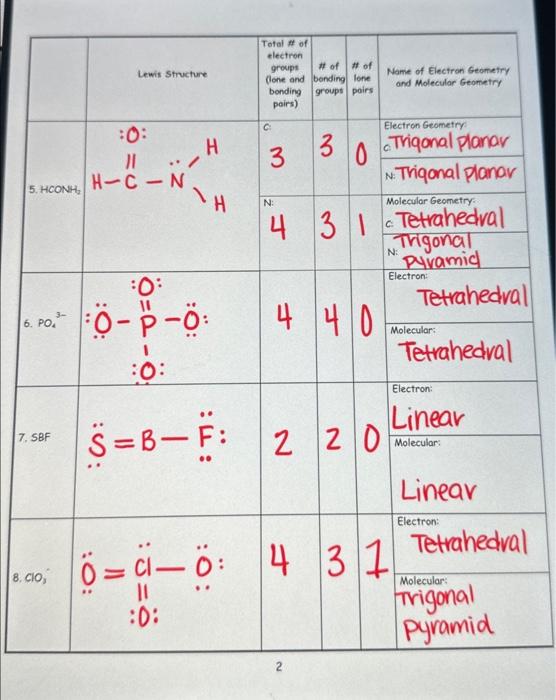 Lewis Structure
Total # of
electron
groups
(lone and
bonding
pairs)
# of
bonding
groups
# of
lone
pairs
Name of Electron Geometry
and Molecular Geometry
5. HCONH₂
:O:
||
H-C-N
H
H
C:
3 3 0
N:
4 3 1
Electron Geometry:
C: Trigonal planar
N: Trigonal planar
Molecular Geometry:
C: Tetrahedral
N: Trigonal
pyramid
6. PO₄³⁻
:O:
||
:O-P-O:
|
:O:
4 4 0
Electron:
Tetrahedral
Molecular:
Tetrahedral
7. SBF
S=B-F:
2 2 0
Electron:
Linear
Molecular:
Linear
8. ClO₃⁻
O=Cl-O:
||
:O:
4 3 1
Electron:
Tetrahedral
Molecular:
Trigonal
pyramid
2